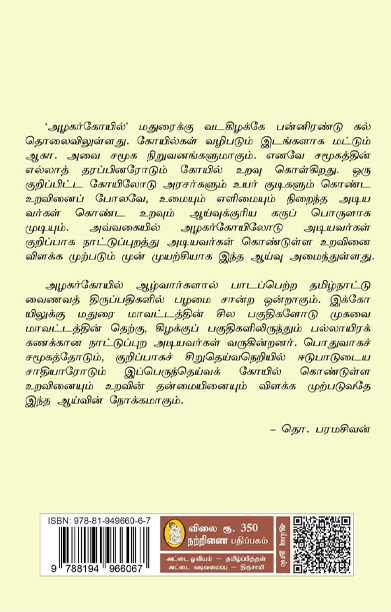 'அழகர்கோயில்' மதுரைக்கு வடகிழக்கே பன்னிரண்டு கல்
தொலைவிலுள்ளது. கோயில்கள் வழிபடும் இடங்களாக மட்டும்
ஆகா. அவை சமூக நிறுவனங்களுமாகும். எனவே சமூகத்தின்
எல்லாத் தரப்பினரோடும் கோயில் உறவு கொள்கிறது. ஒரு
குறிப்பிட்ட கோயிலோடு அரசர்களும் உயர் குடிகளும் கொண்ட
உறவினைப் போலவே, உமையும் எளிமையும் நிறைந்த அடிய
வர்கள் கொண்ட உறவும் ஆய்வுக்குரிய கருப் பொருளாக
முடியும். அவ்வகையில் அழகர்கோயிலோடு அடியவர்கள்
குறிப்பாக நாட்டுப்புறத்து அடியவர்கள் கொண்டுள்ள உறவினை
விளக்க முற்படும் முன் முயற்சியாக இந்த ஆய்வு அமைந்துள்ளது.
அழகர்கோயில் ஆழ்வார்களால் பாடப்பெற்ற தமிழ்நாட்டு
வைணவத் திருப்பதிகளில் பழமை சான்ற ஒன்றாகும். இக்கோ
யிலுக்கு மதுரை மாவட்டத்தின் சில பகுதிகளோடு முகவை
மாவட்டத்தின் தெற்கு, கிழக்குப் பகுதிகளிலிருந்தும் பல்லாயிரக்
கணக்கான நாட்டுப்புற அடியவர்கள் வருகின்றனர். பொதுவாகச்
சமூகத்தோடும், குறிப்பாகச் சிறுதெய்வநெறியில் ஈடுபாடுடைய
சாதியாரோடும் இப்பெருந்தெய்வக் கோயில் கொண்டுள்ள
உறவினையும் உறவின் தன்மையினையும் விளக்க முற்படுவதே
இந்த ஆய்வின் நோக்கமாகும்.
– தொ. பரமசிவன்
ISBN: 978-81-949660-6-7
9 788194 966067
விலை ரூ. 350
நற்றிணை பதிப்பகம்
அட்டை ஓவியம் – தமிழ்ப்பித்தன்
அட்டை வடிவமைப்பு – இருசாமி